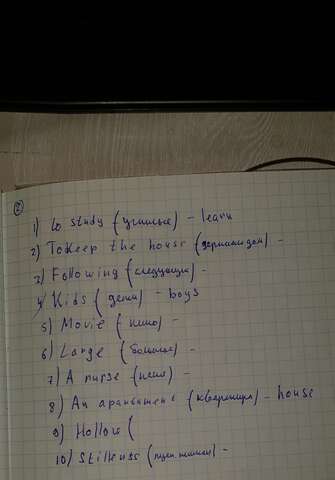 ②
1) to study (училься) - learn
2) To keep the house (держим дом) -
3) Following (следующий) -
4) Kids (дети) - boys
5) Movie (кино) -
6) Large (большое) -
7) A nurse (няня) -
8) An apartament (квартира) - house
9) Hollow (
10) Stillenss ( -